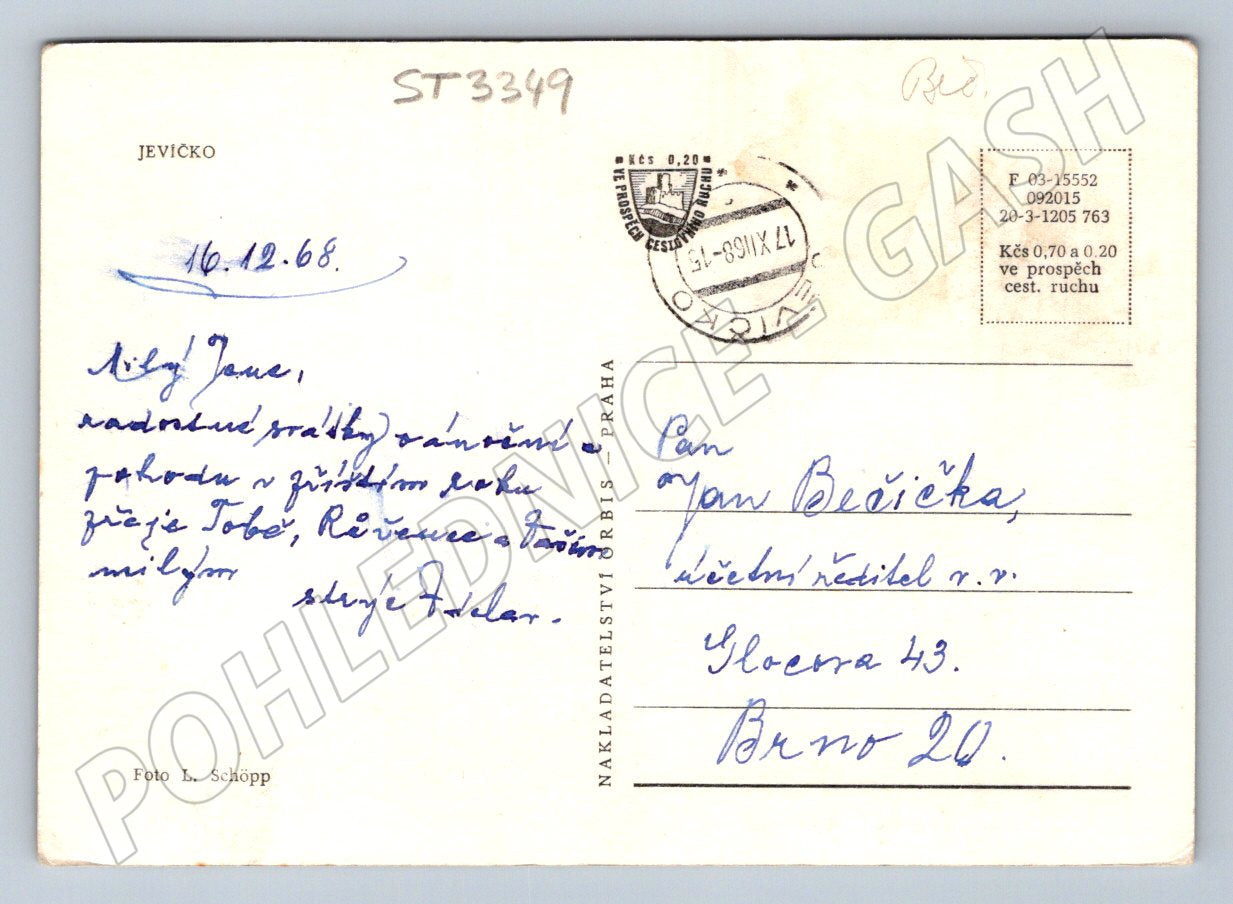 ST 3349
Beč.
JEVÍČKO
16.12.68.
Milý Jene,
radostné svátky vánoční a
pohodu v příštím roku
přeje Tobě, Růžence a Vašim
milým
strýc Adolar.
Foto L. Schöpp
NAKLADATELSTVÍ ORBIS — PRAHA
Kčs 0,20
VE PROSPĚCH CESTOVNÍHO RUCHU
17.XII68-15
JEVÍČKO
F 03-15552
092015
20-3-1205 763
Kčs 0,70 a 0.20
ve prospěch
cest. ruchu
Pan
Jan Bečička,
účetní ředitel v.v.
Glocova 43.
Brno 20.
POHLEDNICE - GASH